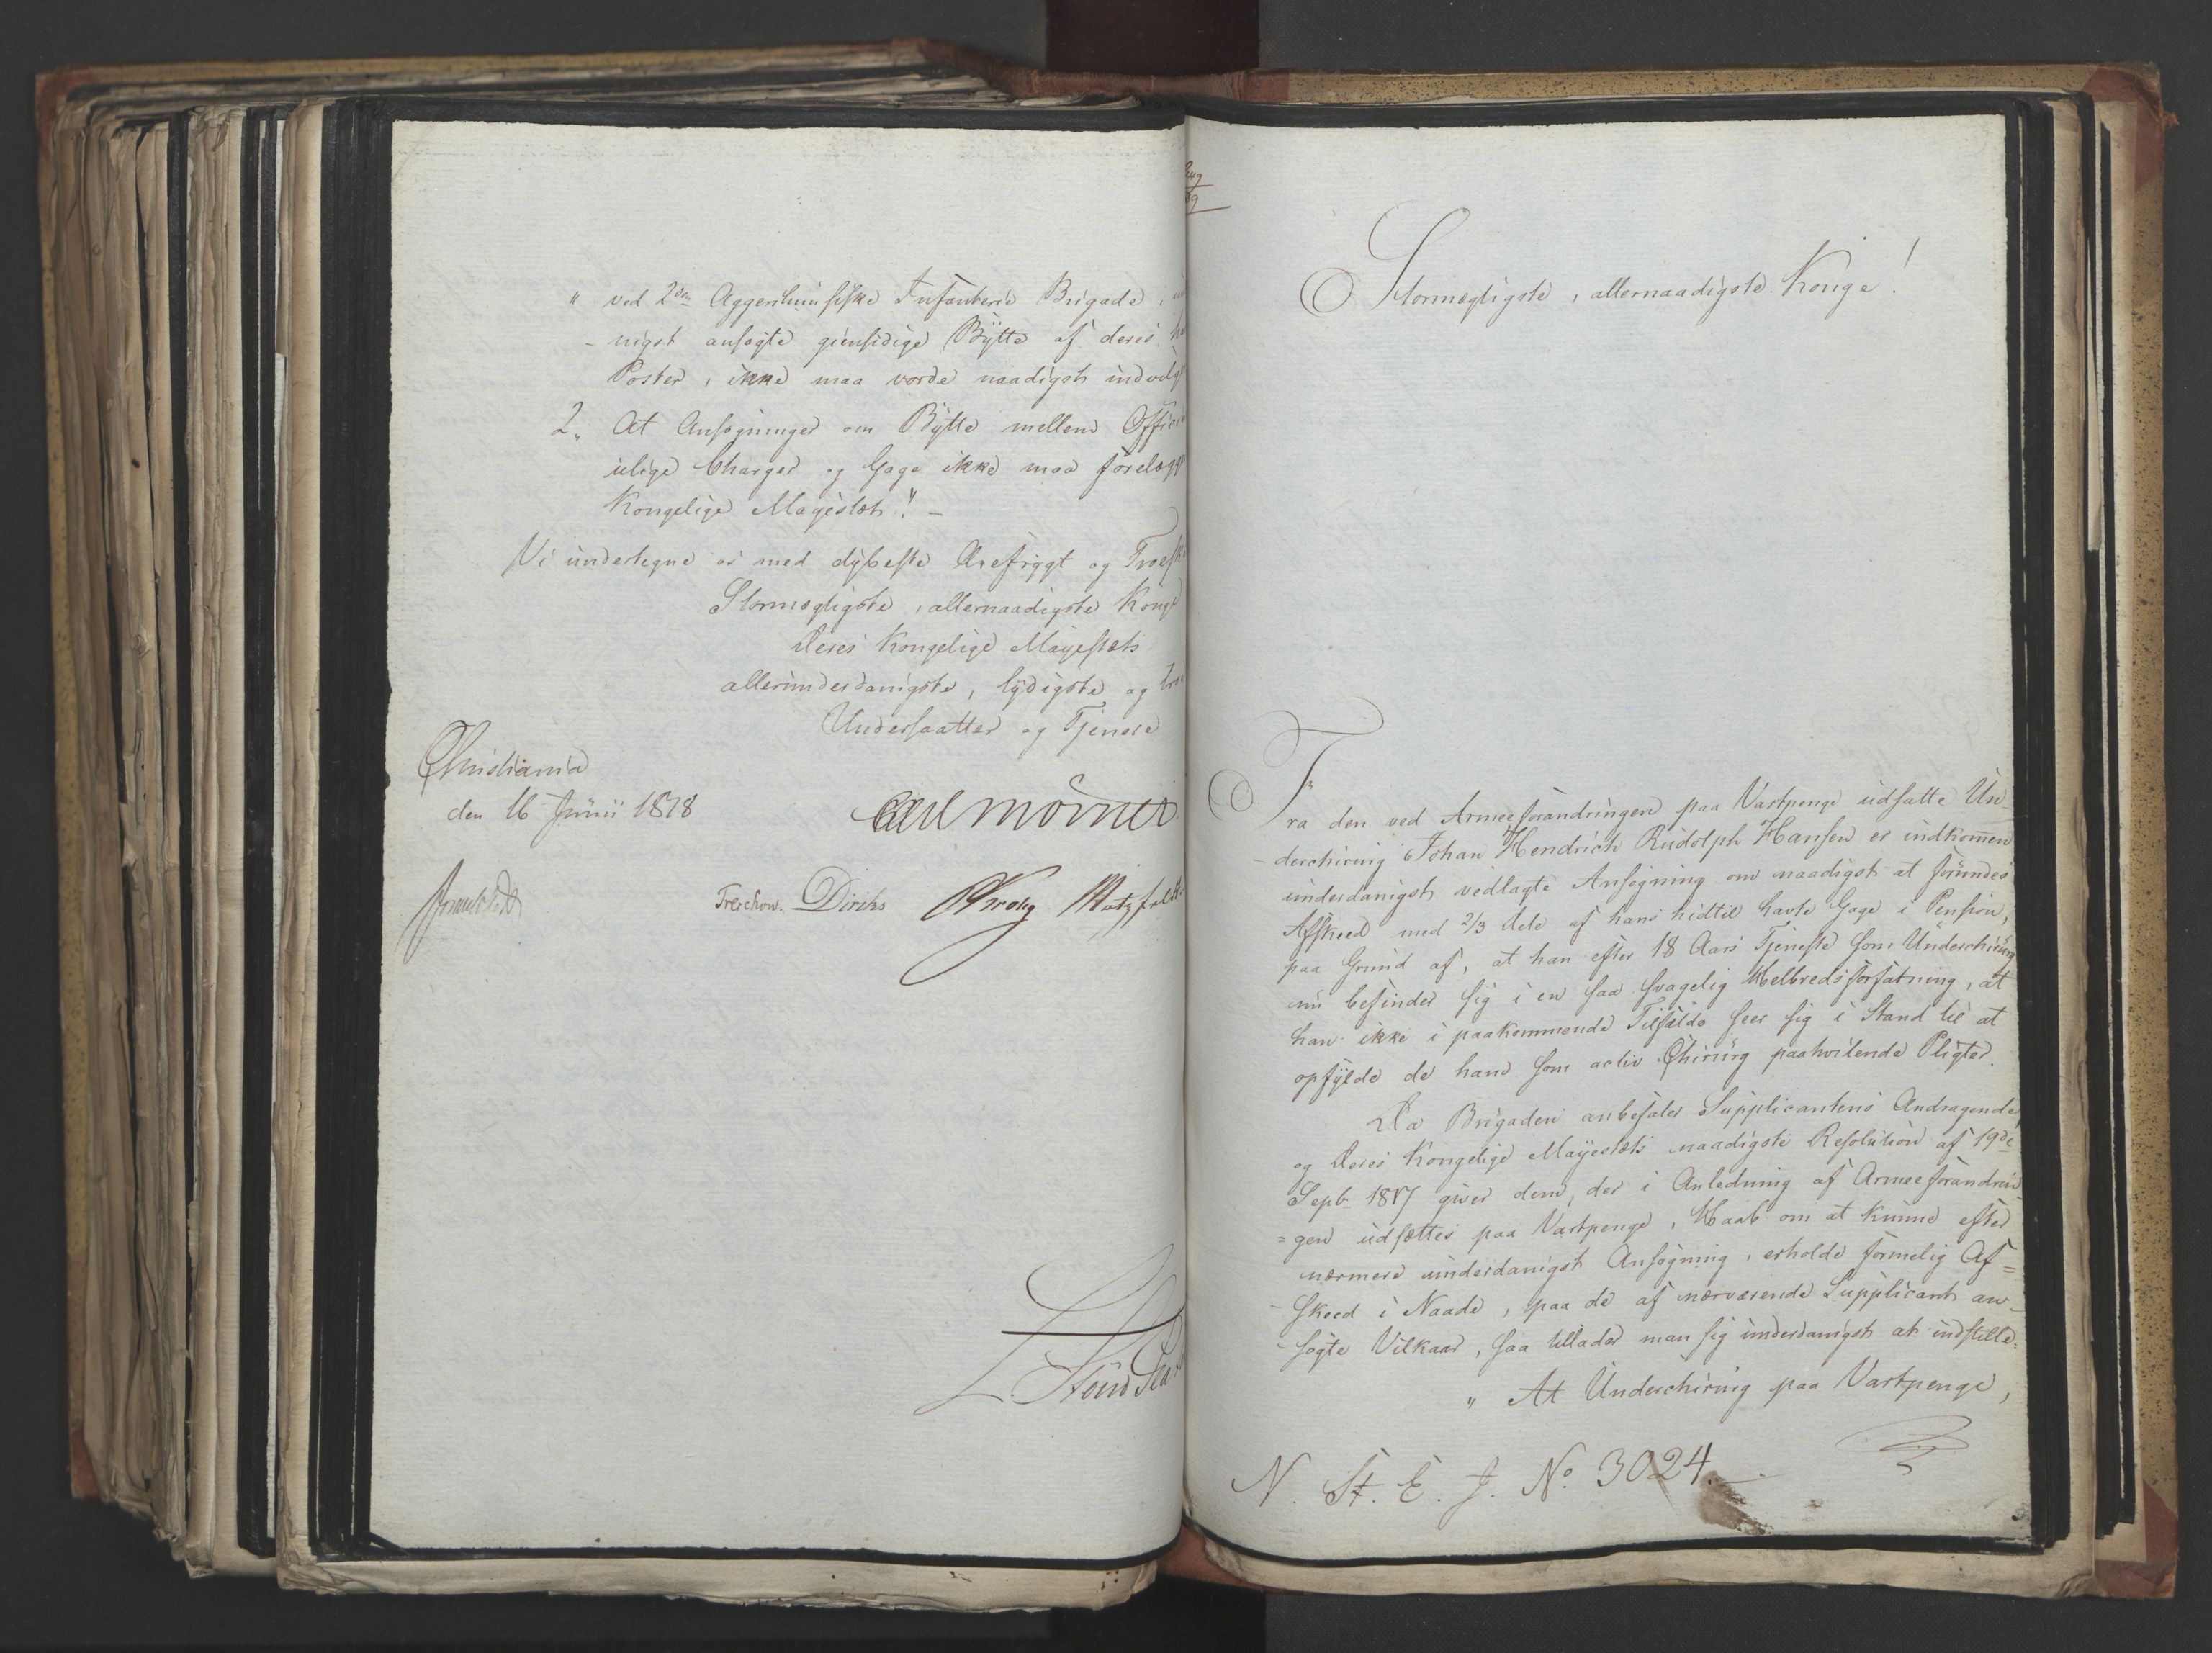 " ved 2den Aggershuusiske Infanterie Brigade,
- nigst ansøgte giensidige Bÿtte af deres
Poster, ikke maa vorde naadigst indvilg
2, At Ansøgninger om Bÿtte mellem Offic
ulige Charger og Gage ikke maa forelægg
Kongelige Mayestæt!" -
Vi undertegne os med dÿbeste Ærefrÿgt og Troesk
Stormægtigste, allernaadigste Konge
Deres Kongelige Mayestæts
allerunderdanigste, lÿdigste og troe
Undersaatter og Tjenere
Christiania
den 16 Junii 1818
Carl Mörner
Sommerfeldt
Treschow. Diriks Krog Motzfeldt
Stormægtigste, allernaadigste Konge!
Fra den ved Armeeforandringen paa Vartpenge udsatte Un-
- derchirurg Johan Hendrich Rudolph Hansen er indkommen
underdanigst vedlagte Ansøgning om naadigst at forundes
Afskeed med 2/3 Dele af hans hidtil havte Gage i Pension,
paa Grund af, at han efter 18 Aars Tjeneste som Underchirurg
nu befinder sig i en saa svagelig Helbredsforfatning, at
han ikke i paakommende Tilfælde seer sig i Stand til at
opfÿlde de ham som activ Chirurg paahvilende Pligter.
Da Brigaden anbefaler Supplicantens Andragende,
og Deres Kongelige Mayestæts naadigste Resolution af 19de
Septr 1817 giver dem, der i Anledning af Armeeforandrin-
= gen udsættes paa Vartpenge, Haab om at kunne efter
nærmere underdanigst Ansøgning, erholde formelig Af=
- skeed i Naade, paa de af nærværende Supplicant an-
- søgte Vilkaar, saa tillader man sig underdanigst at indstille:
" At Underchirurg paa Vartpenge,
N. St. E. J. No 3024.